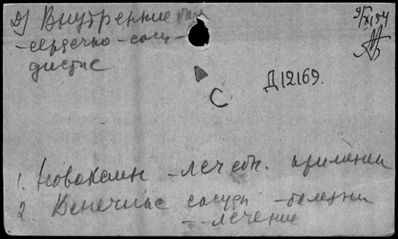 2) Внутренние бол
-сердечно-сосу-
дистые
9/XI 54
С
Д12169.
1. Новокаин -лечебн. примении
2 Венечные сосуды -болезни
--лечение